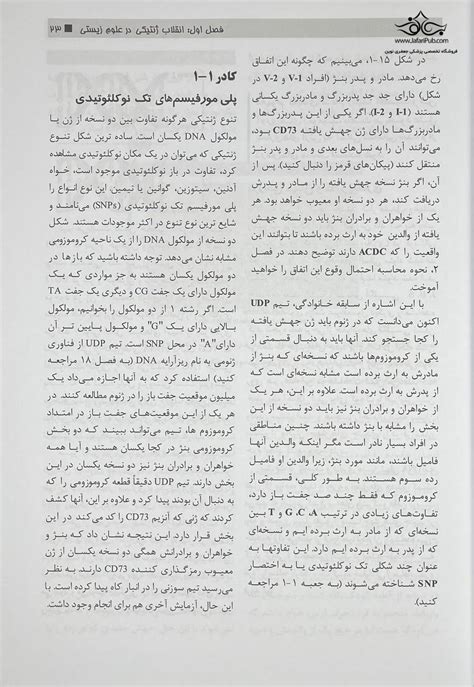 فصل اول: انقلاب ژنتیکی در علوم زیستی ■ ۲۳
www.JafariPub.com
فروشگاه تخصصی پزشکی جعفری نوین
کادر ۱–۱
پلی مورفیسم‌های تک نوکلئوتیدی
تنوع ژنتیکی هرگونه تفاوت بین دو نسخه از ژن یا
مولکول DNA یکسان است. ساده ترین شکل تنوع
ژنتیکی که می‌توان در یک مکان نوکلئوتیدی مشاهده
کرد، تفاوت در باز نوکلئوتیدی موجود است، خواه
آدنین، سیتوزین، گوانین یا تیمین. این نوع انواع را
پلی مورفیسم تک نوکلئوتیدی (SNPs) می‌نامند و
شایع ترین نوع تنوع در اکثر موجودات هستند. شکل
دو نسخه از مولکول DNA را از یک ناحیه کروموزومی
مشابه نشان می‌دهد. توجه داشته باشید که بازها در دو
مولکول یکسان هستند به جز مواردی که یک
مولکول دارای یک جفت CG و دیگری یک جفت TA
است. اگر رشته ۱ از دو مولکول را بخوانیم، مولکول
بالایی دارای یک "G" و مولکول پایین تر آن
دارای"A" در محل SNP است. تیم UDP از فناوری
ژنومی به نام ریزآرایه DNA (به فصل ۱۸ مراجعه
کنید) استفاده کرد که به آنها اجازه می‌داد یک
میلیون موقعیت جفت باز را در ژنوم مطالعه کنند. در
هر یک از این موقعیت‌های جفت باز در امتداد
کروموزوم ها، تیم می‌تواند ببیند که دو بخش
کروموزومی بنژ در کجا یکسان هستند و آیا همه
خواهران و برادران بنژ نیز دو نسخه از همین
بخش دارند. تیم UDP دقیقاً قطعه کروموزومی را که
به دنبال آن بودند پیدا کرد و علاوه بر این، آنها کشف
کردند که ژنی که آنزیم CD73 را کد می‌کند در این
بخش قرار دارد. این نتیجه نشان داد که بنژ و
خواهران و برادرانش همگی دو نسخه یکسان از ژن
معیوب رمزگذاری کننده CD73 دارند. به نظر
می‌رسید تیم سوزنی را در انبار کاه پیدا کرده است. با
این حال، آزمایش آخری هم برای انجام وجود داشت.
در شکل ۱۵–۱، می‌بینیم که چگونه این اتفاق
رخ می‌دهد. مادر و پدر بنژ (افراد V-1 و V-2 در
شکل) دارای جد جد پدربزرگ و مادربزرگ یکسانی
هستند (I-1 و I-2). اگر یکی از این پدربزرگ‌ها و
مادربزرگ‌ها دارای ژن جهش یافته CD73 بود،
می‌توانند آن را به نسل‌های بعدی و مادر و پدر بنژ
منتقل کنند (پیکان‌های قرمز را دنبال کنید). پس از
آن، اگر بنژ نسخه جهش یافته را از مادر و پدرش
دریافت کند، هر دو نسخه او معیوب خواهد بود. هر
یک از خواهران و برادران بنژ باید دو نسخه جهش
یافته از والدین خود به ارث برده باشند تا بتوانند این
واقعیت را که ACDC دارند توضیح دهند. در فصل
۲، نحوه محاسبه احتمال وقوع این اتفاق را خواهید
آموخت.
با این اشاره از سابقه خانوادگی، تیم UDP
اکنون می‌دانست که در ژنوم باید به دنبال ژن معیوب
کجا جستجو کند. آنها باید به دنبال قسمتی از
یکی از کروموزوم‌ها باشند که نسخه‌ای که بنژ از
مادرش به ارث برده است مشابه نسخه‌ای باشد که از
پدرش به ارث برده است. علاوه بر این، هر یک
از خواهران و برادران بنژ نیز باید دو نسخه از این
بخش را مشابه با بنژ داشته باشند. چنین مناطقی
در افراد بسیار نادر است مگر اینکه والدین آنها
فامیل باشند، مانند مورد بنژ، زیرا والدین او فامیل
رده سوم هستند. به طور کلی، قسمتی از
کروموزوم که فقط چند صد جفت باز دارد،
تفاوت‌های زیادی در ترتیب G ،C ،A و T بین
نسخه‌ای که از مادر به ارث برده ایم و نسخه‌ای
که از پدر به ارث برده ایم دارد. این تفاوتها به
عنوان چند شکلی تک نوکلئوتیدی یا به اختصار
SNP شناخته می‌شوند (به جعبه ۱–۱ مراجعه
کنید).